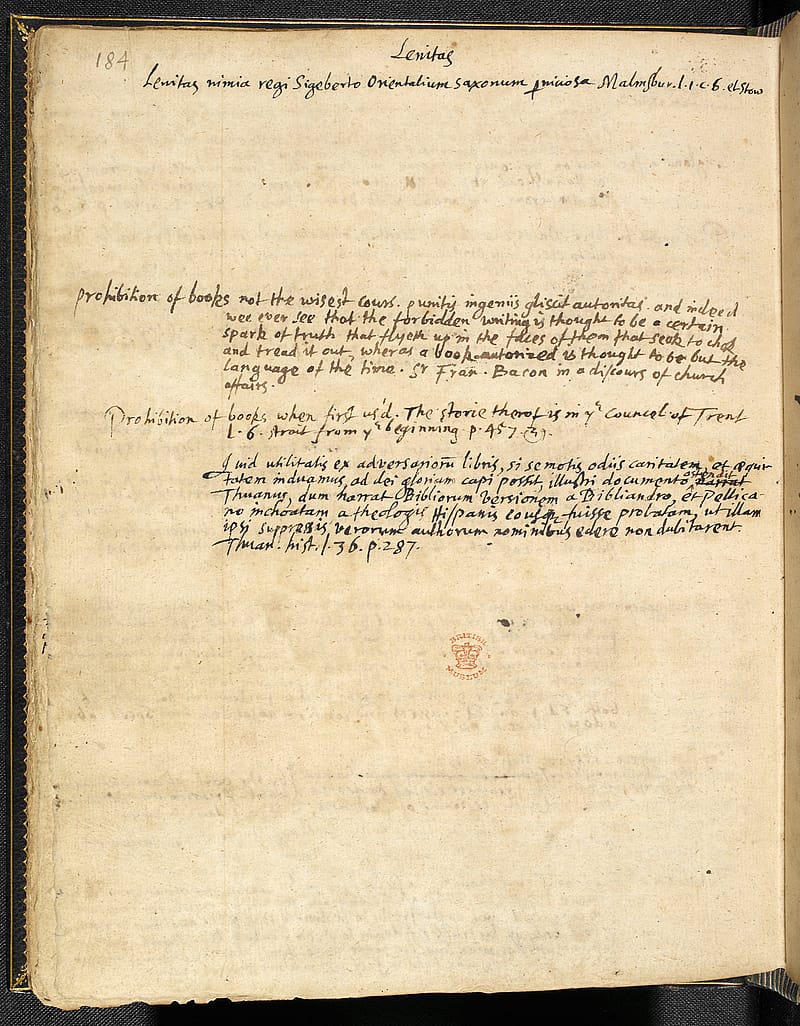 184
Lenitas
Lenitas nimia regi Sigeberto Orientalium saxonum p̱niciosa Malmsbur. l. 1. c. 6. et Stow
Prohibition of books not the wisest cours. punitis ingeniis gliscit autoritas. and indeed
wee ever see that the forbidden writing is thought to be a certain
spark of truth that flyeth up in the faces of them that seek to
and tread it out, wheras a book autorized is thought to be but the
language of the time. Sr Fran. Bacon in a discours of church
affairs.
Prohibition of books when first us'd. The storie therof is in yᵉ councel of Trent
l. 6. strait from yᵉ beginning p. 457. &).
Quid utilitatis ex adversarioru̅ libris, si semotis odiis caritatem, et æqui-
ostendit
tatem induamus, ad dei gloriam capi possit, illustri documento narrat
Thuanus, dum narrat Bibliorum versionem a Bibliandro, et Pellica-
no inchoatam a theologis Hispanis eousq fuisse probatam, ut illam
ipsi suppressis, verorum authorum nominibus edere non dubitarent.
Thuan. hist. l. 36. p. 287.
BRITISH
MUSEUM